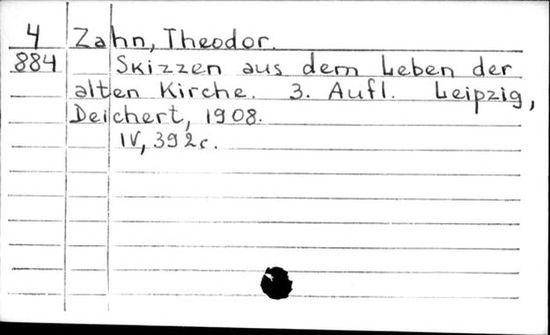 4 Zahn, Theodor.
884 Skizzen aus dem Leben der
alten Kirche. 3. Aufl. Leipzig,
Deichert, 1908.
IV, 392 c.